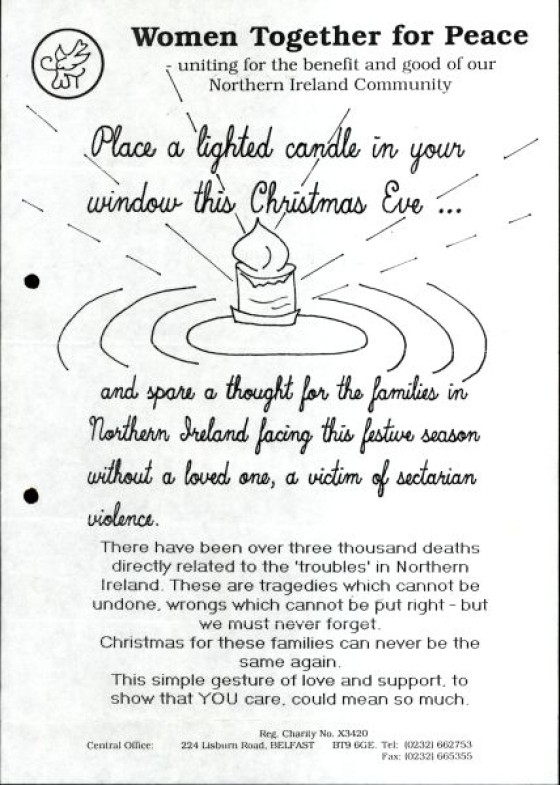 Women Together for Peace
- uniting for the benefit and good of our
Northern Ireland Community
WT
Place a lighted candle in your
window this Christmas Eve ...
and spare a thought for the families in
Northern Ireland facing this festive season
without a loved one, a victim of sectarian
violence.
There have been over three thousand deaths
directly related to the 'troubles' in Northern
Ireland. These are tragedies which cannot be
undone, wrongs which cannot be put right - but
we must never forget.
Christmas for these families can never be the
same again.
This simple gesture of love and support, to
show that YOU care, could mean so much.
Reg. Charity No. X3420
Central Office: 224 Lisburn Road, BELFAST BT9 6GE. Tel: (0232) 662753
Fax: (0232) 665355